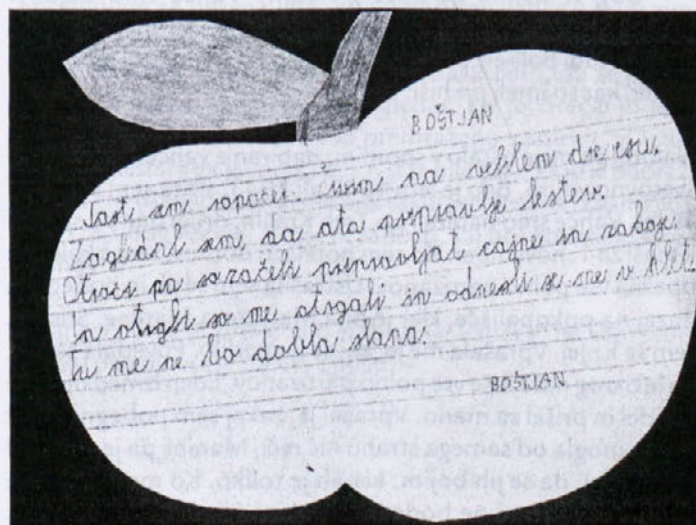 BOŠTJAN
Jast sem kopaček. Živim na velikem drevesu.
Zagledal sem, da ata pripravlja lestev.
Otroci pa so začeli pripravljat cajne in zaboje.
In otrgli so me otrgali in odnesli so me v klet.
Tu me ne bo dobla slana.
BOŠTJAN